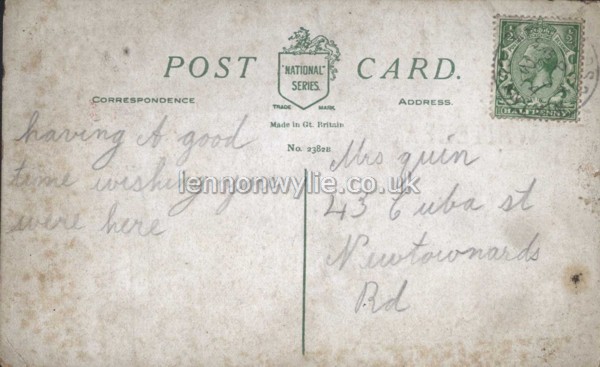 POST CARD.
"NATIONAL"
SERIES.
TRADE MARK.
CORRESPONDENCE
ADDRESS.
Made in Gt. Britain
No. 2382
having A good
time wishing you
were here
lennonwylie.co.uk
Mrs quin
43 Cuba st
Newtownards
Rd
HALFPENNY